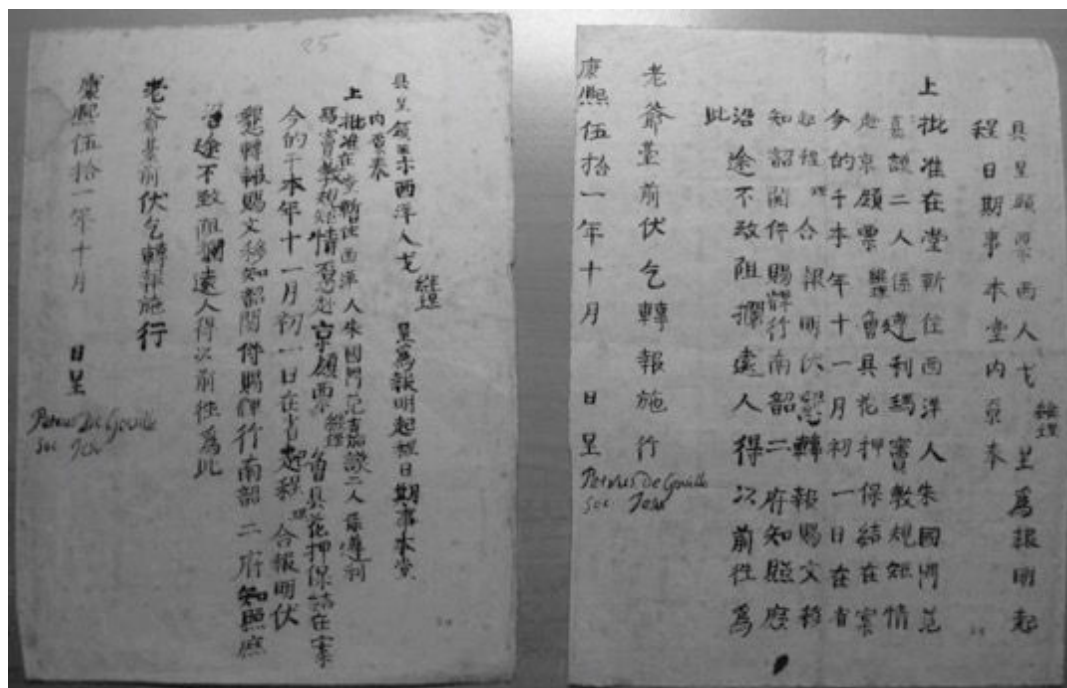 24
具呈領票西人戈維理呈為報明起
程日期事本堂內京奉
上批准在堂暫住西洋人朱國門范
嘉謨二人係遵利瑪竇教規矩情
赴京領票維理曾具花押保結在案
今的于本年十一月初一日在省
起程理合報明伏懇轉報賜文移
知韶關仵賜牌行南韶二府知照庶
沿途不致阻攔遠人得以前往為
此
老爺臺前伏乞轉報施行
康熙伍拾一年十月 日呈
Petrus De Goville
Soc Jesu
25
具呈領票西洋人戈維理 呈為報明起程日期事本堂
內京奉
上批准在堂暫住西洋人朱國門范嘉謨二人係遵利
瑪竇教規矩情愿赴京領票維理曾具花押保結在案
今的于本年十一月初一日在省起程理合報明伏
懇轉報賜文移知韶關仵賜牌行南韶二府知照庶
沿途不致阻攔遠人得以前往為此
老爺臺前伏乞轉報施行
康熙伍拾一年十月 日呈
Petrus De Goville
Soc Jesu